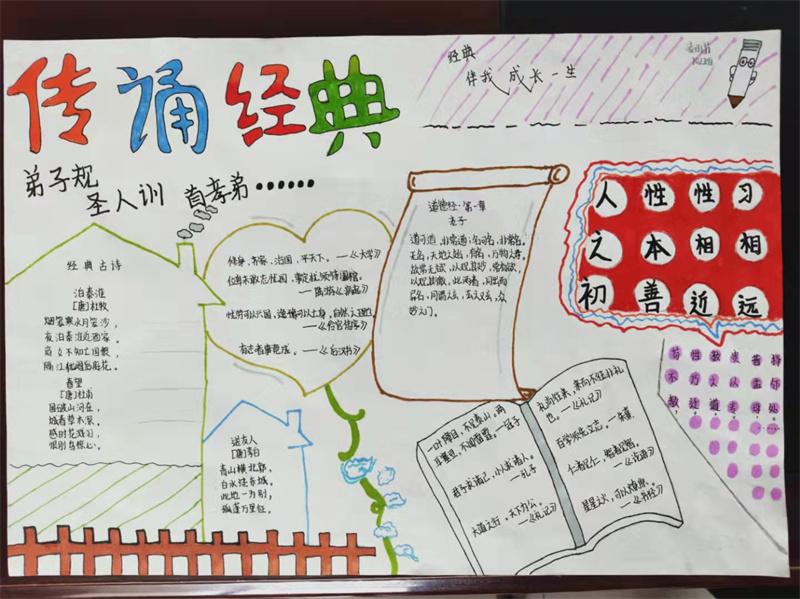 传诵经典
经典
伴我成长一生
弟子规
圣人训 首孝弟……
经典古诗
泊秦淮
[唐]杜牧
烟笼寒水月笼沙，
夜泊秦淮近酒家。
商女不知亡国恨
隔江犹唱后庭花。
春望
[唐]杜甫
国破山河在，
城春草木深。
感时花溅泪，
恨别鸟惊心。
送友人
[唐]李白
青山横北郭，
白水绕东城。
此地一为别，
孤蓬万里征。
修身，齐家，治国，平天下。——《大学》
位卑未敢忘忧国，事定犹须待阖棺。
——陆游《病起》
忧劳可以兴国，逸豫可以亡身，自然之理也。
——《伶官传序》
有志者事竟成。——《后汉书》
道德经·第一章
老子
道可道，非常道；名可名，非常名。
无名，天地之始，有名，万物之母。
故常无欲，以观其妙，常有欲，
以观其徼，此两者，同出而
异名，同谓之玄，玄之又玄，众
妙之门。
人 性 性 习
之 本 相 相
初 善 近 远
苟 性 教 贵 昔 择
不 乃 之 以 孟 邻
教， 迁， 道， 专， 母， 处
一叶障目，不见泰山。两
耳塞豆，不闻雷霆。
君子求诸己，小人求诸人。
——孔子
大道之行，天下为公。
——《礼记》
礼尚往来，来而不往非礼
也。——《礼记》
——《论语》
星星之火，可以燎原。